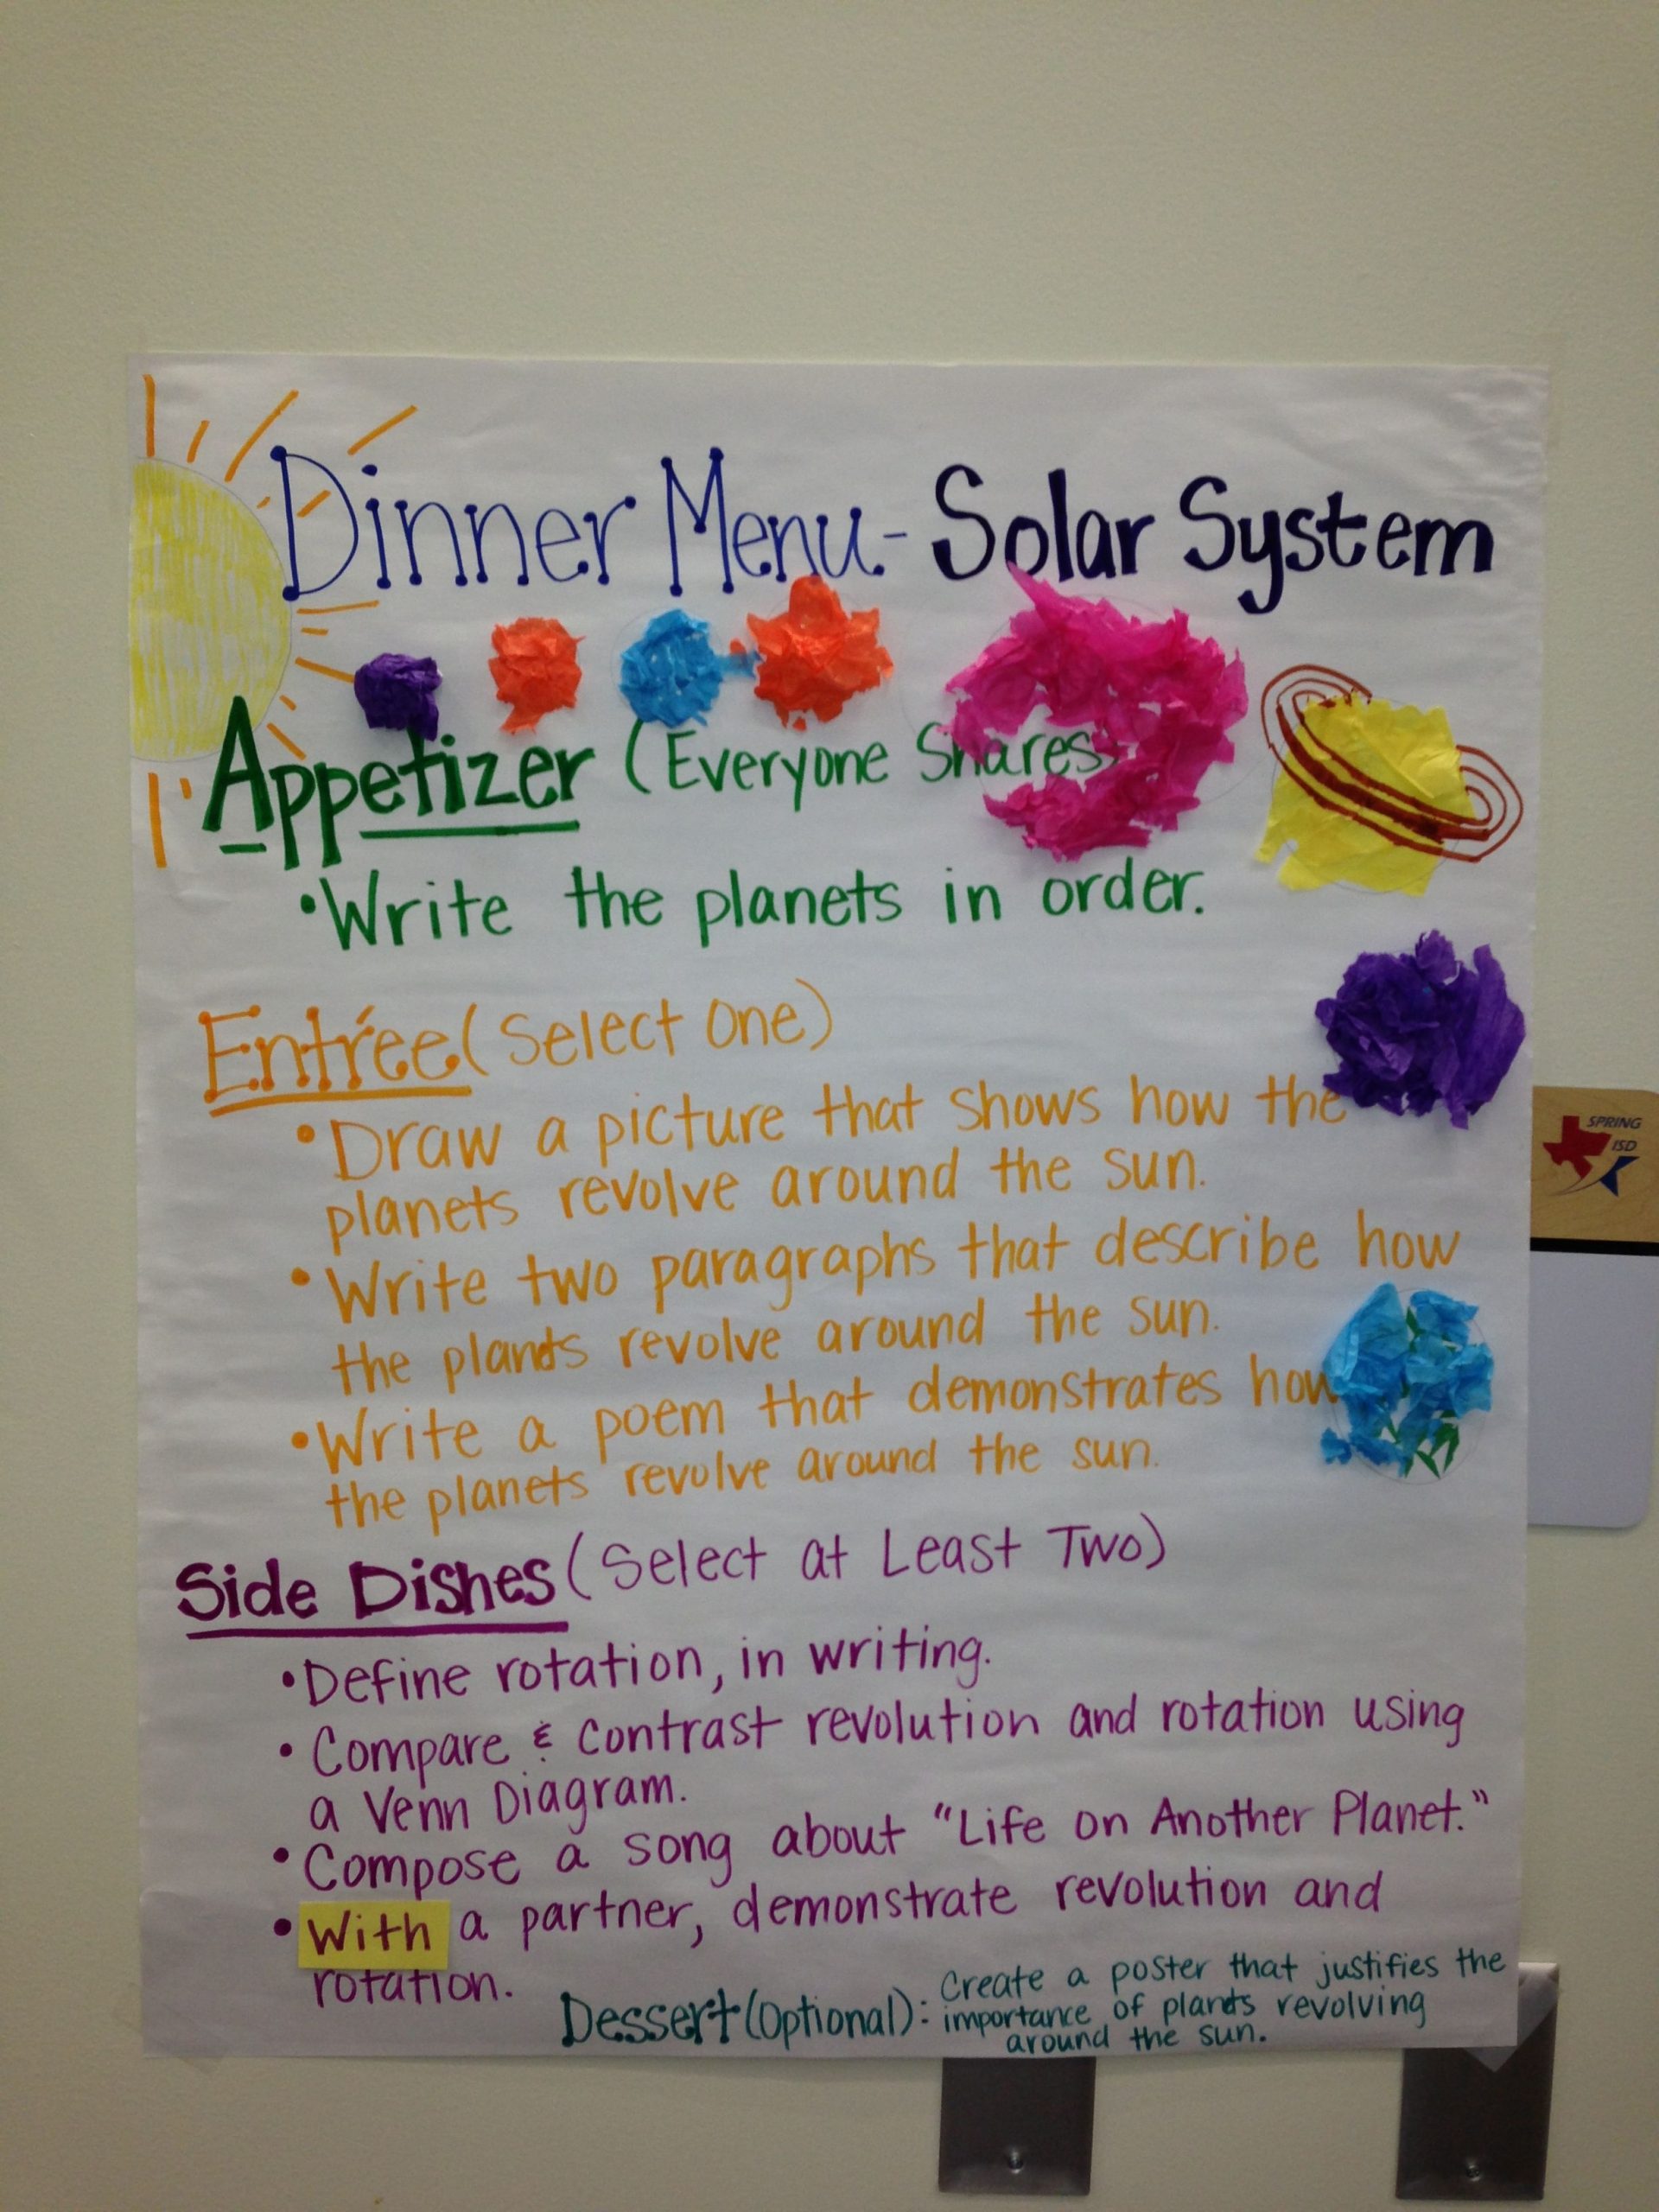 Dinner Menu - Solar System
Appetizer (Everyone Shares)
• Write the planets in order.
Entrée (Select One)
• Draw a picture that shows how the
planets revolve around the sun.
• Write two paragraphs that describe how
the planets revolve around the sun.
• Write a poem that demonstrates how
the planets revolve around the sun.
Side Dishes (Select at Least Two)
• Define rotation, in writing.
• Compare & Contrast revolution and rotation using
a Venn Diagram.
• Compose a song about "Life on Another Planet."
• With a partner, demonstrate revolution and
rotation.
Dessert (Optional): Create a poster that justifies the
importance of planets revolving
around the sun.
SPRING
ISD